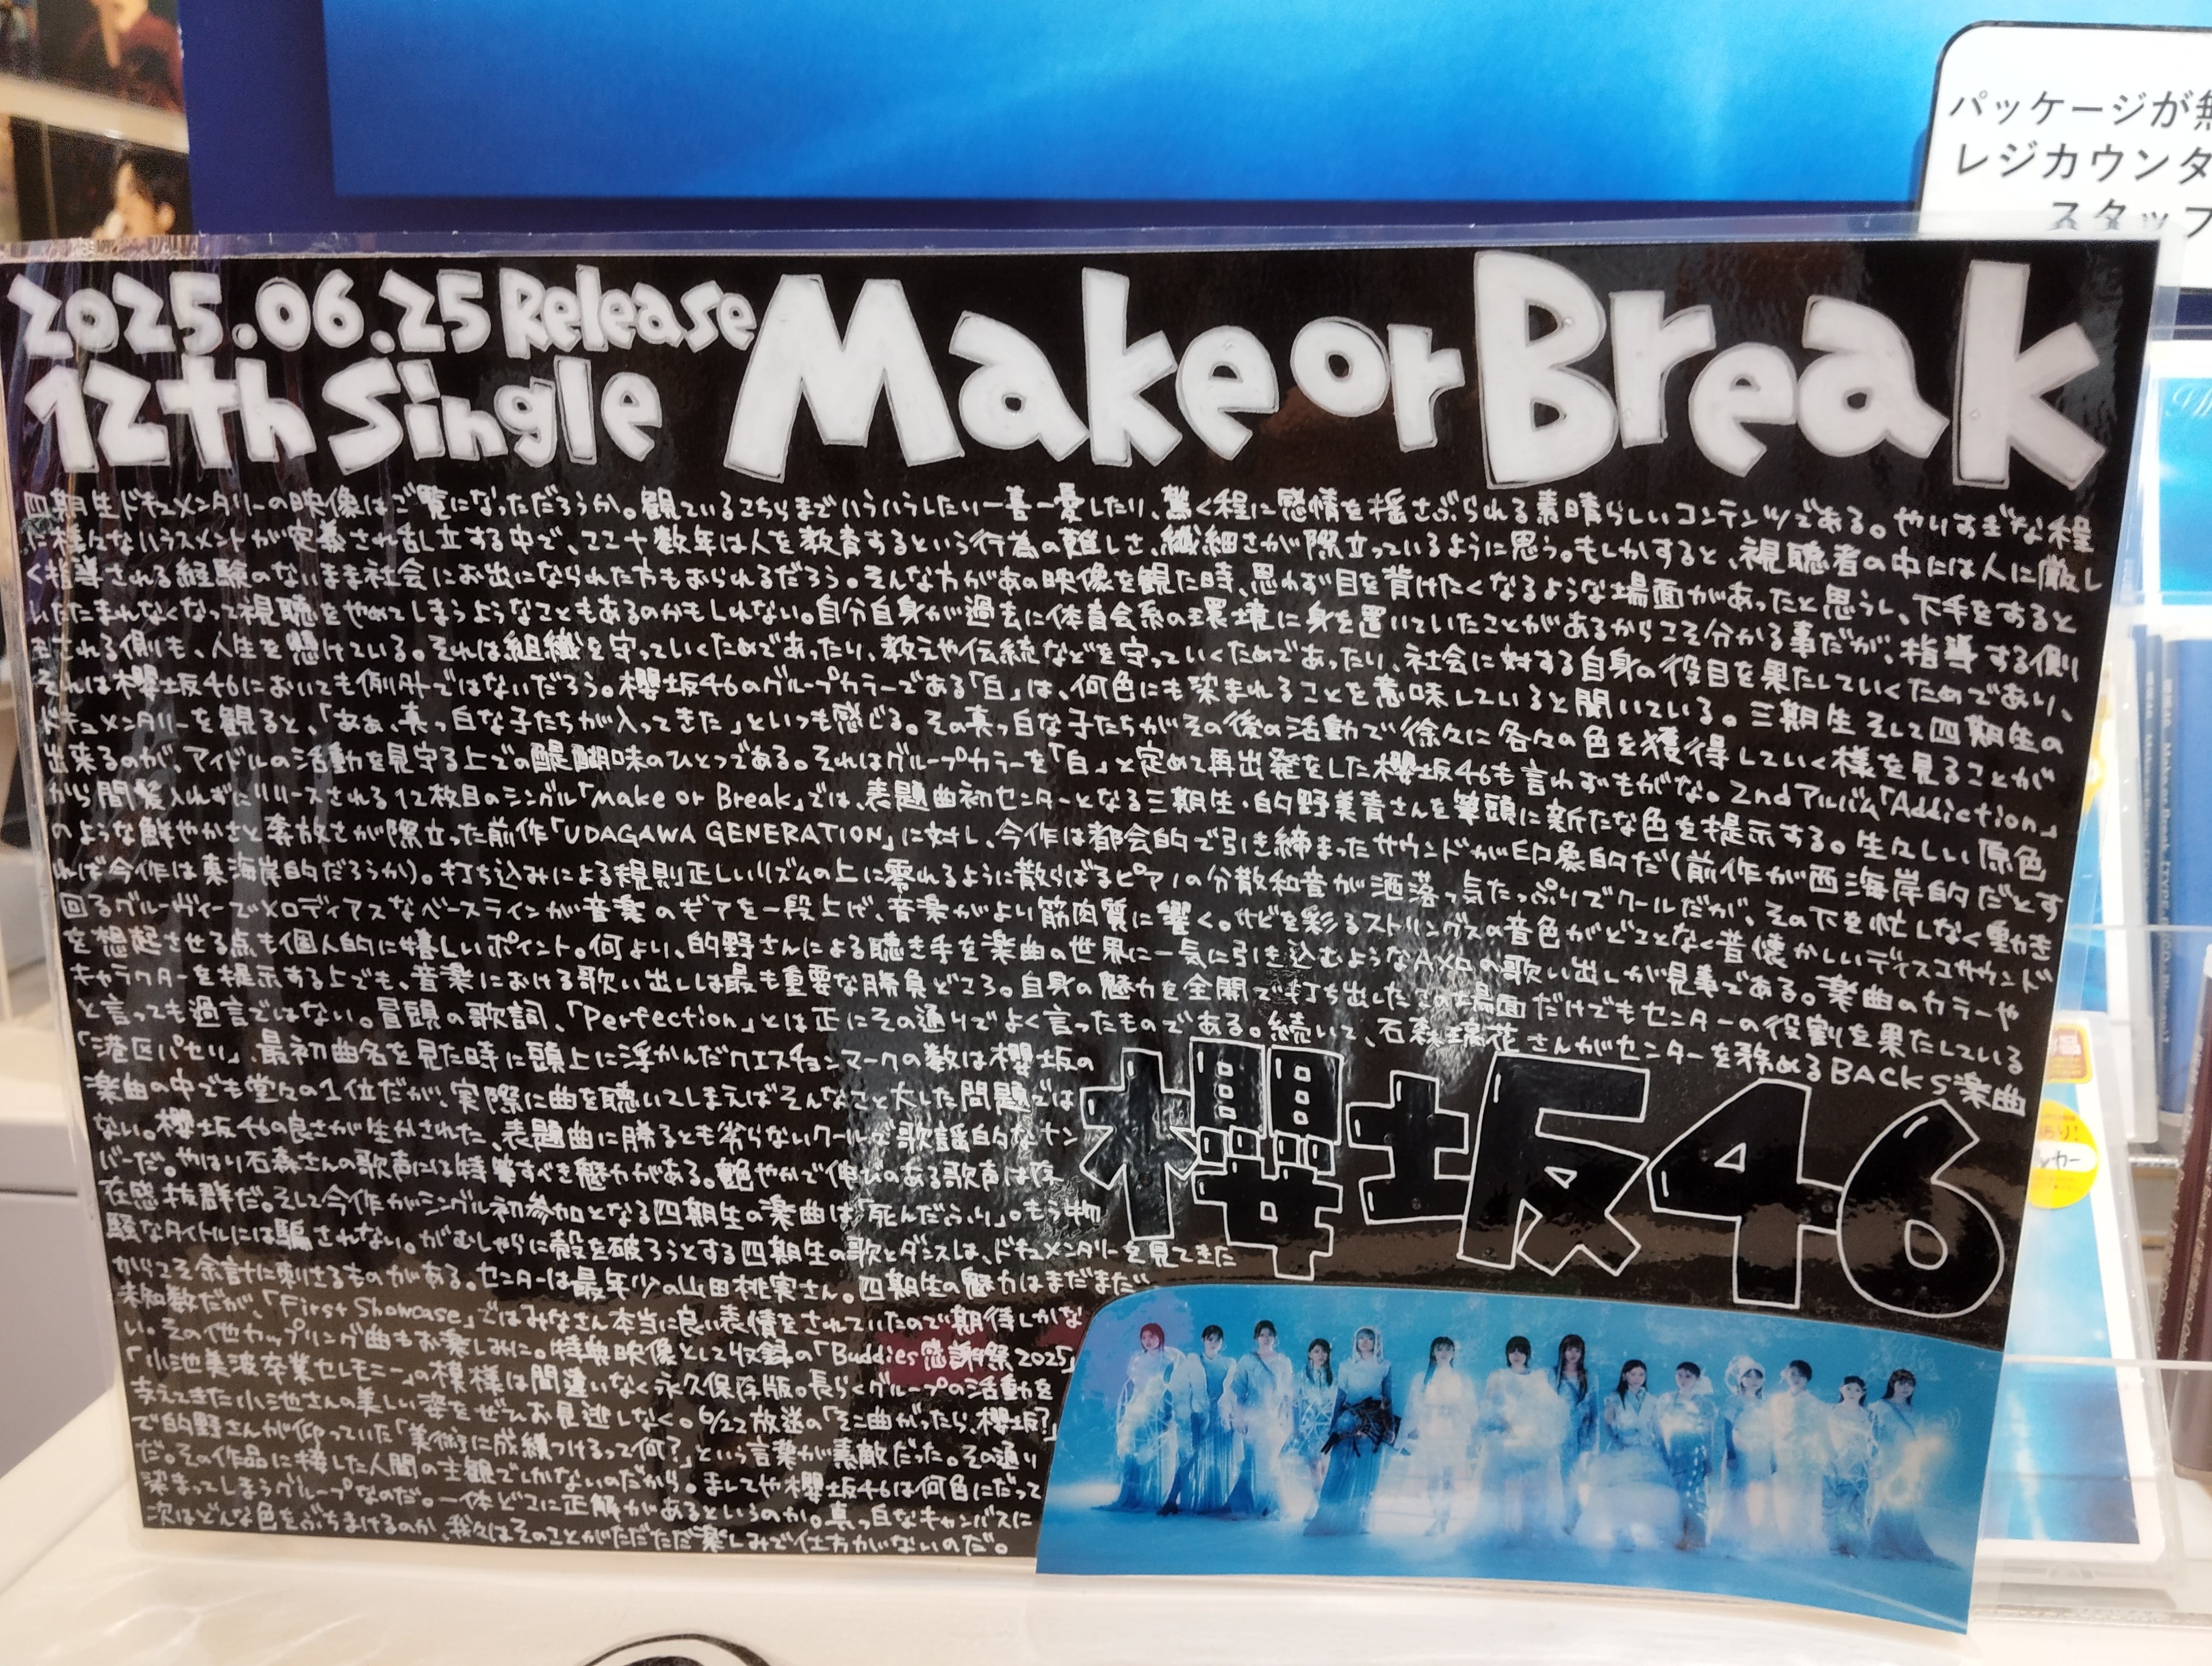 パッケージが無
レジカウンタ
スタッフ
2025.06.25 Release
12th Single
Make or Break
四期生ドキュメンタリーの映像はご覧になっただろうか。観ているこちらまでいろいろしたい一喜一憂したり、驚く程に感情を揺さぶられる素晴らしいコンテンツである。やりすぎな程
に様々なハラスメントが定義され乱立する中で、ここ十数年は人を教育するという行為の難しさ、繊細さが際立っているように思う。もしかすると、視聴者の中には人に厳し
く指導される経験のないまま社会にお出になられた方もおられるだろう。そんな方があの映像を観た時、思わず目を背けたくなるような場面があったと思うし、下手をすると
いたたまれなくなって視聴をやめてしまうようなこともあるのかもしれない。自分自身が過去に体育会系の環境に身を置いていたことがあるからこそ分かる事だが、指導する側
もされる側も、人生を懸けている。それは組織を守っていくためであったり、教えや伝統などを守っていくためであったり、社会に対する自身の役目を果たしていくためであり、
それは櫻坂46においても例外ではないだろう。櫻坂46のグループカラーである「白」は、何色にも染まれることを意味していると聞いている。三期生そして四期生の
ドキュメンタリーを観ると、「ああ、真っ白な子たちが入ってきた」といつも感じる。その真っ白な子たちがその後の活動で徐々に各々の色を獲得していく様を見ることが
出来るのが、アイドルの活動を見守る上での醍醐味のひとつである。それはグループカラーを「白」と定めて再出発をした櫻坂46も言わずもがな。2ndアルバム「Addiction」
から間髪入れずにリリースされる12枚目のシングル「Make or Break」では、表題曲初センターとなる三期生・的野美青さんを筆頭に新たな色を提示する。生々しい原色
のような鮮やかさと奔放さが際立った前作「UDAGAWA GENERATION」に対し、今作は都会的で引き締まったサウンドが印象的だ(前作が西海岸的だとす
れば今作は東海岸的だろうか)。打ち込みによる規則正しいリズムの上に零れるように散らばるピアノの分散和音が洒落っ気たっぷりでクールだが、その下を忙しなく動き
回るグルーヴィーでメロディアスなベースラインが音楽のギアを一段上げ、音楽がより筋肉質に響く。サビを彩るストリングスの音色がどことなく昔懐かしいディスコサウンド
を想起させる点も個人的に嬉しいポイント。何より、的野さんによる聴き手を楽曲の世界に一気に引き込むようなAメロの歌い出しが見事である。楽曲のカラーや
キャラクターを提示する上でも、音楽における歌い出しは最も重要な勝負どころ。自身の魅力を全開で打ち出したこの場面だけでもセンターの役割を果たしている
と言っても過言ではない。冒頭の歌詞、「Perfection」とは正にその通りでよく言ったものである。続いて、石森璃花さんがセンターを務めるBACKS楽曲
「港区パセリ」。最初曲名を見た時に頭上に浮かんだクエスチョンマークの数は櫻坂の
楽曲の中でも堂々の1位だが、実際に曲を聴いてしまえばそんなこと大した問題では
ない。櫻坂46の良さが生かされた、表題曲に勝るとも劣らないクールで歌謡的なナン
バーだ。やはり石森さんの歌声には特筆すべき魅力がある。艶やかで伸びのある歌声は存
在感抜群だ。そして今作がシングル初参加となる四期生の楽曲は「死んだふり」。もう物
騒なタイトルには騙されない。がむしゃらに殻を破ろうとする四期生の歌とダンスは、ドキュメンタリーを見てきた
からこそ余計に刺さるものがある。センターは最年少の山田桃実さん。四期生の魅力はまだまだ
未知数だが、「First Showcase」ではみなさん本当に良い表情をされていたので期待しかな
い。その他カップリング曲もお楽しみに。特典映像として収録の「Buddies感謝祭2025」
「小池美波卒業セレモニー」の模様は間違いなく永久保存版。長らくグループの活動を
支えてきた小池さんの美しい姿をぜひお見逃しなく。6/22放送の「そこ曲がったら、櫻坂?」
で的野さんが仰っていた「美術に成績つけるって何?」という言葉が素敵だった。その通り
だ。その作品に接した人間の主観でしかないのだから。ましてや櫻坂46は何色にだって
染まってしまうグループなのだ。一体どこに正解があるというのか。真っ白なキャンバスに
次はどんな色をぶちまけるのか、我々はそのことがただただ楽しみで仕方がないのだ。
櫻坂46